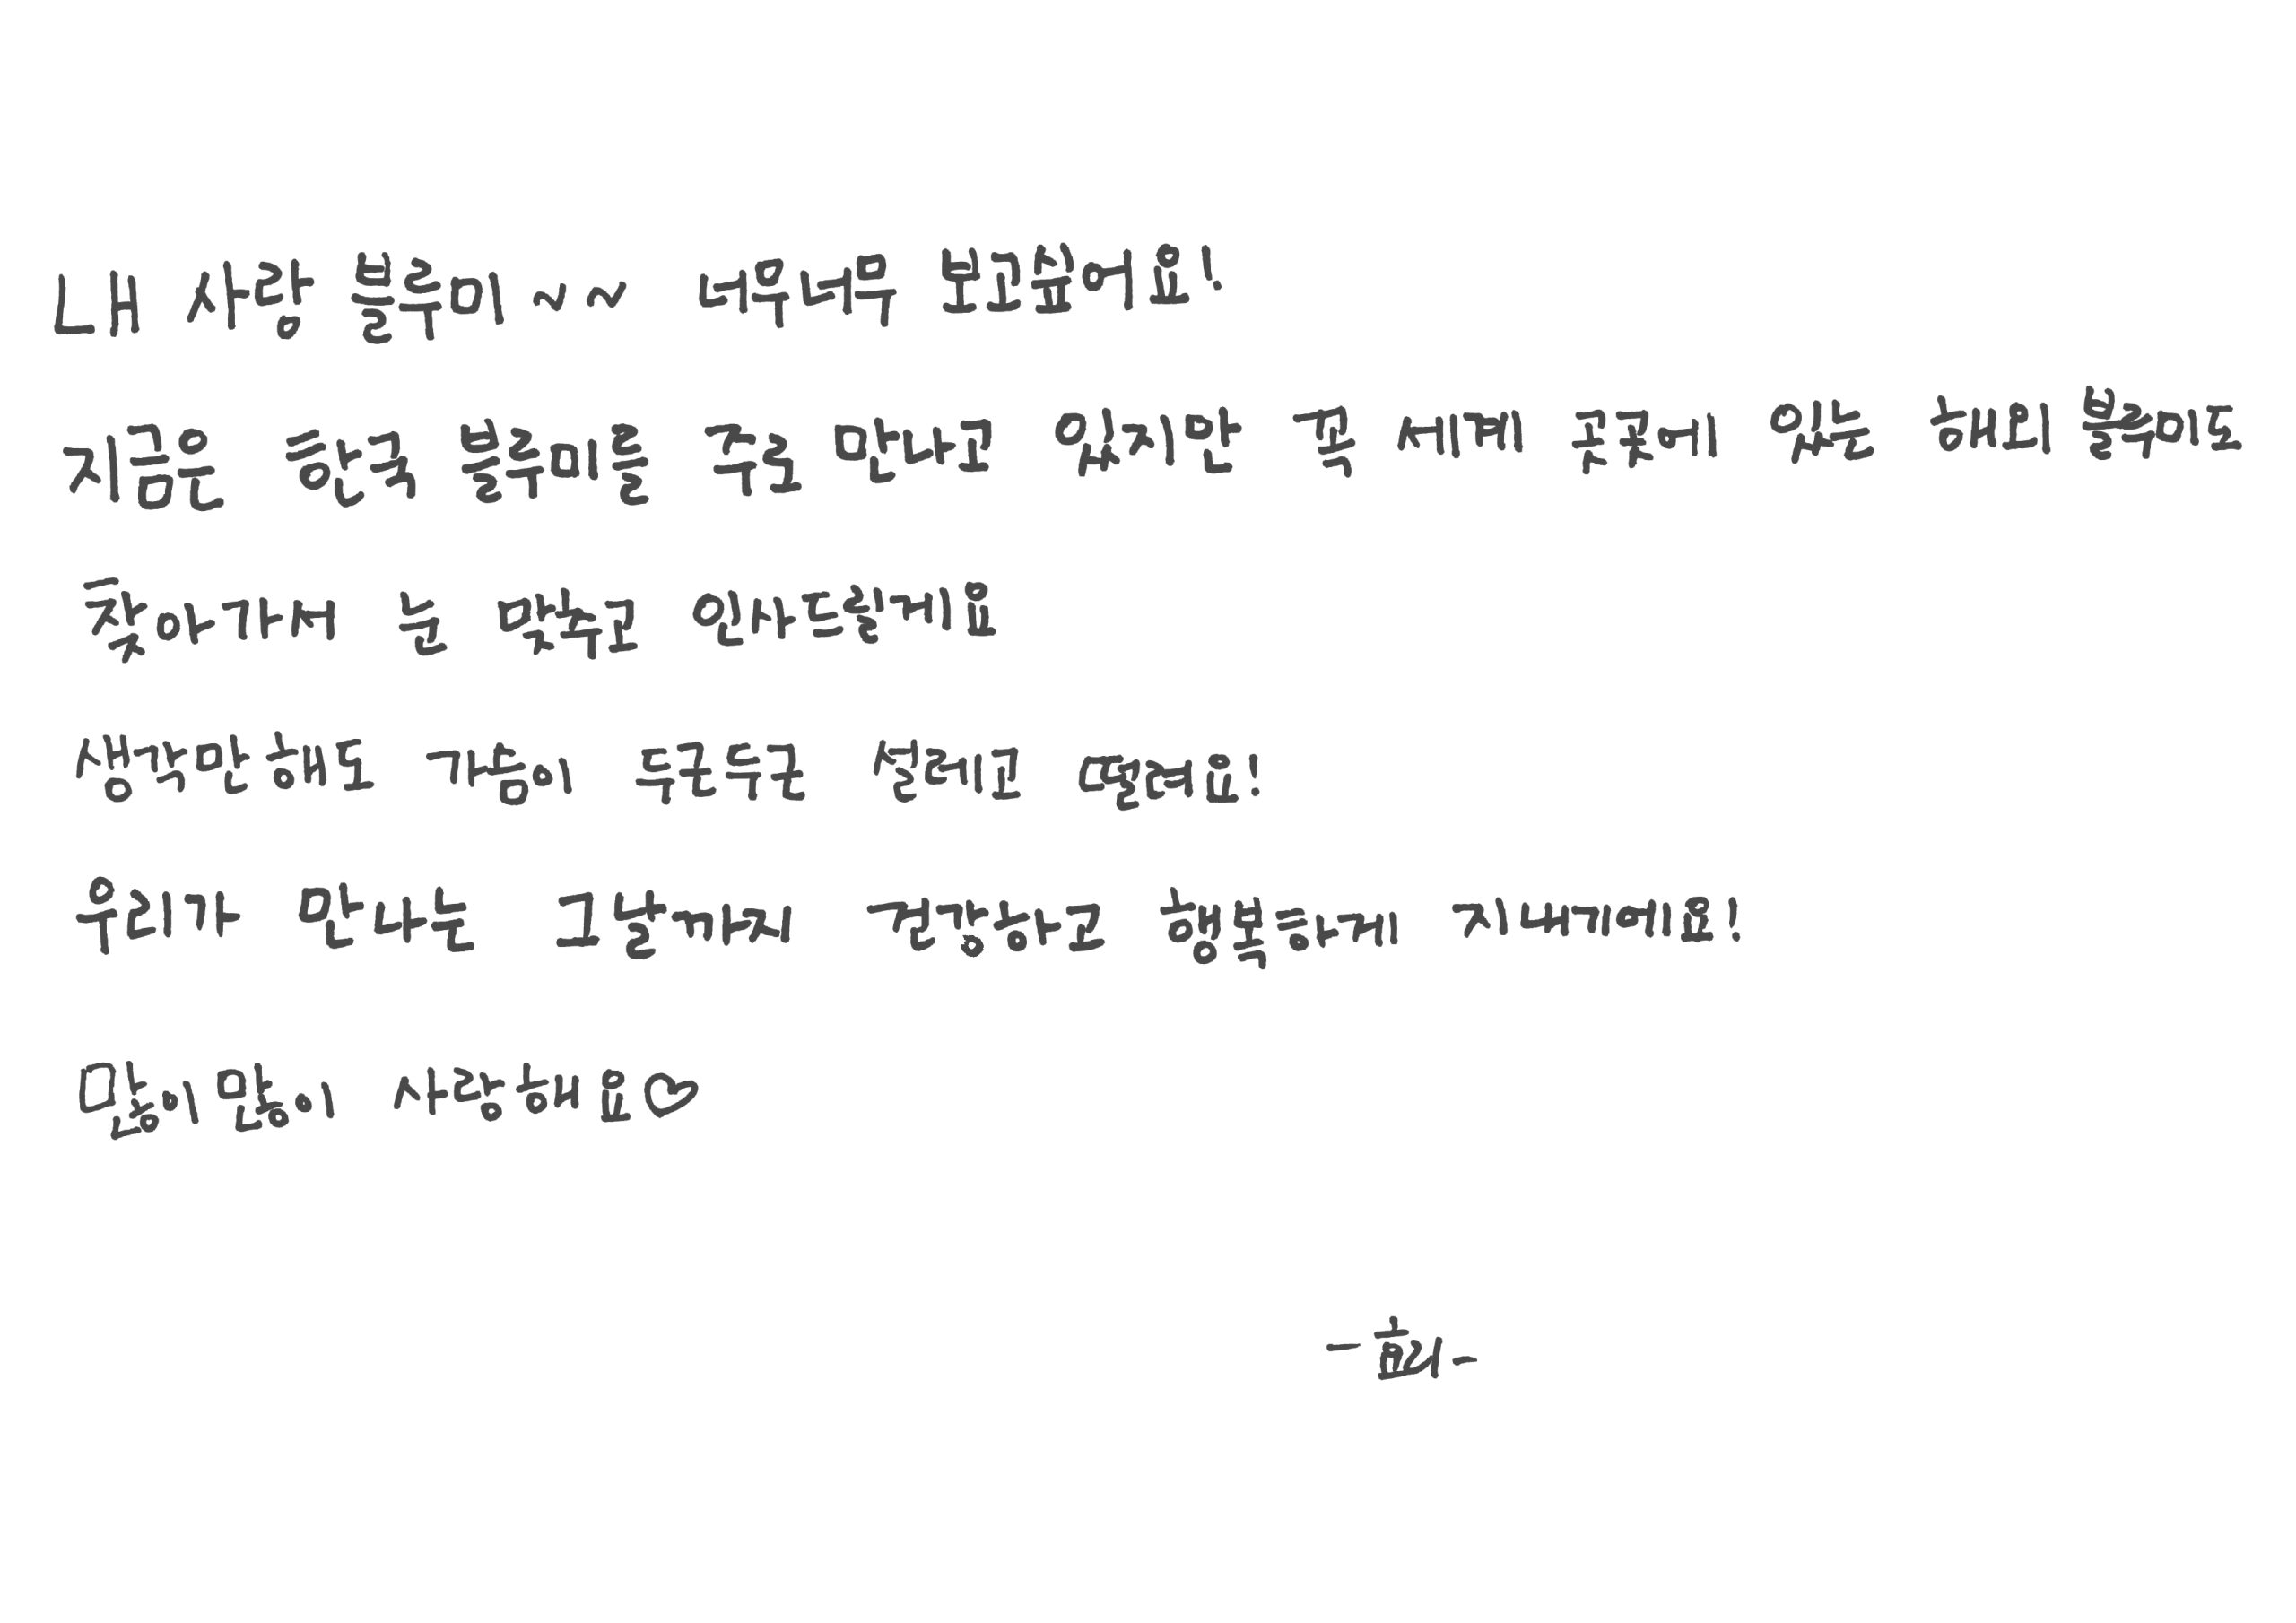 내 사랑 블루미~~ 너무너무 보고싶어요!
지금은 한국 블루미를 주로 만나고 있지만 꼭 세계 곳곳에 있는 해외 블루미도
찾아가서 눈 맞추고 인사드릴게요
생각만해도 가슴이 두근두근 설레고 떨려요!
우리가 만나는 그날까지 건강하고 행복하게 지내기에요!
많이많이 사랑해요♡
-효리-